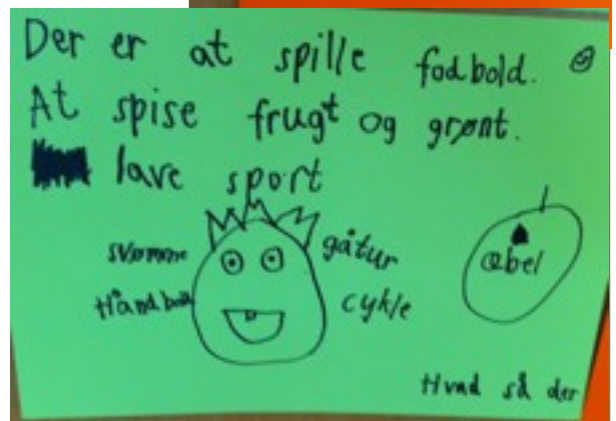 Der er at spille fodbold.
At spise frugt og grønt.
lave sport
svømme
gåtur
Håndbold
cykle
æbel
Hvad så der